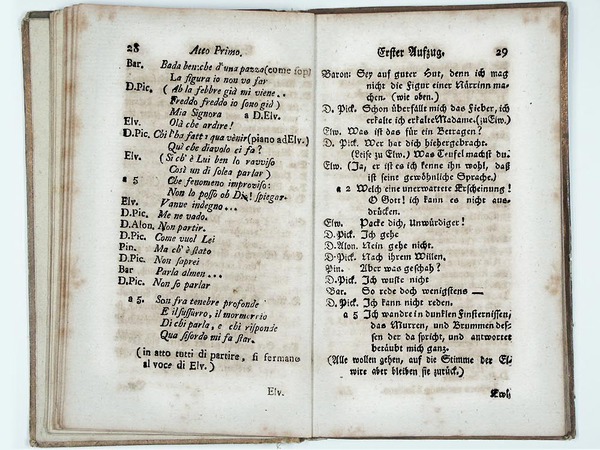 28 Atto Primo.
Bar. Bada ben:che d'una pazza(come sop)
La figura io non vo far
D.Pic. ( Ah la febbre già mi viene..
Freddo freddo io sono già )
Mia Signora a D.Elv.
Elv. Olà che ardire!
D.Pic. Chi t'ha fatt: qua venir(piano adElv.)
Qui che diavolo ci fa?
Elv. ( Si ch' è Lui ben lo ravviso
Così un di solea parlar )
a 5 Che fenomeno improviso:
Non lo posso oh Dio! spiegar.
Elv. Vanne indegno...
D.Pic. Me ne vado.
D.Alon. Non partir.
D.Pic. Come vuol Lei
Pin. Ma ch' è stato
D.Pic. Non saprei
Bar Parla almen...
D.Pic. Non so parlar
a 5. Son fra tenebre profonde
E il sussurro, il mormorio
Di chi parla, e chi risponde
Qua sisordo mi fa star.
(in atto tutti di partire, si fermano
al voce di Elv.)
Elv.
Erster Aufzug. 29
Baron: Sey auf guter Hut, denn ich mag
nicht die Figur einer Närrinn ma-
chen. (wie oben.)
D. Pick. Schon überfälle mich das Fieber, ich
erkalte ich erkalte Madame.(zu Elw.)
Elw. Was ist das für ein Betragen?
D. Pick. Wer hat dich hiehergebracht.
(Leise zu Elw.) Was Teufel machst du.
Elw. (Ja, er ist es ich kenne ihn wohl, daß
ist seine gewöhnliche Sprache.)
a 2 Welch eine unerwartete Erscheinung!
O Gott! ich kann es nicht aus-
drücken.
Elw. Packe dich, Unwürdiger!
D. Pick. Ich gehe
D.Alon. Nein gehe nicht.
D-Pick. Nach ihrem Willen.
Pin. Aber was geschah?
D.Pick. Ich wuste nicht
Bar. So rede doch wenigstens —
D.Pick. Ich kann nicht reden.
a 5 Ich wandre in dunklen Finsternissen,
das Murren, und Brummen des-
sen der da spricht, und antwortet
betäubt mich ganz.
(Alle wollen gehen, auf die Stimme der El-
wire aber bleiben sie zurück.)